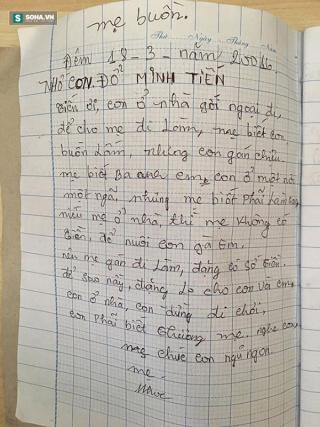 SOHA.VN
mẹ buồn.
Thứ Ngày Tháng Năm
Đêm 18-3-năm 2004
NHỚ CON. ĐỖ MINH TIẾN
tiến ơi, con ở nhà gới ngoại đi,
để cho mẹ đi Làm, mẹ biết con
buồn Lắm, nhưng con gắn chiệu
mẹ biết Ba anh em, con ở một nơi
một ngã, nhưng mẹ biết Phải Làm
nếu mẹ ở nhà, thì mẹ không có
tiền, để nuôi con gà Em,
nên mẹ gắn đi Làm, đặng có số tiền.
để sao này, đặng Lo cho con và em
con ở nhà, con đừng đi chơi,
con phải biết thương mẹ. nghe con
mẹ chúc con ngủ ngon.
mẹ.